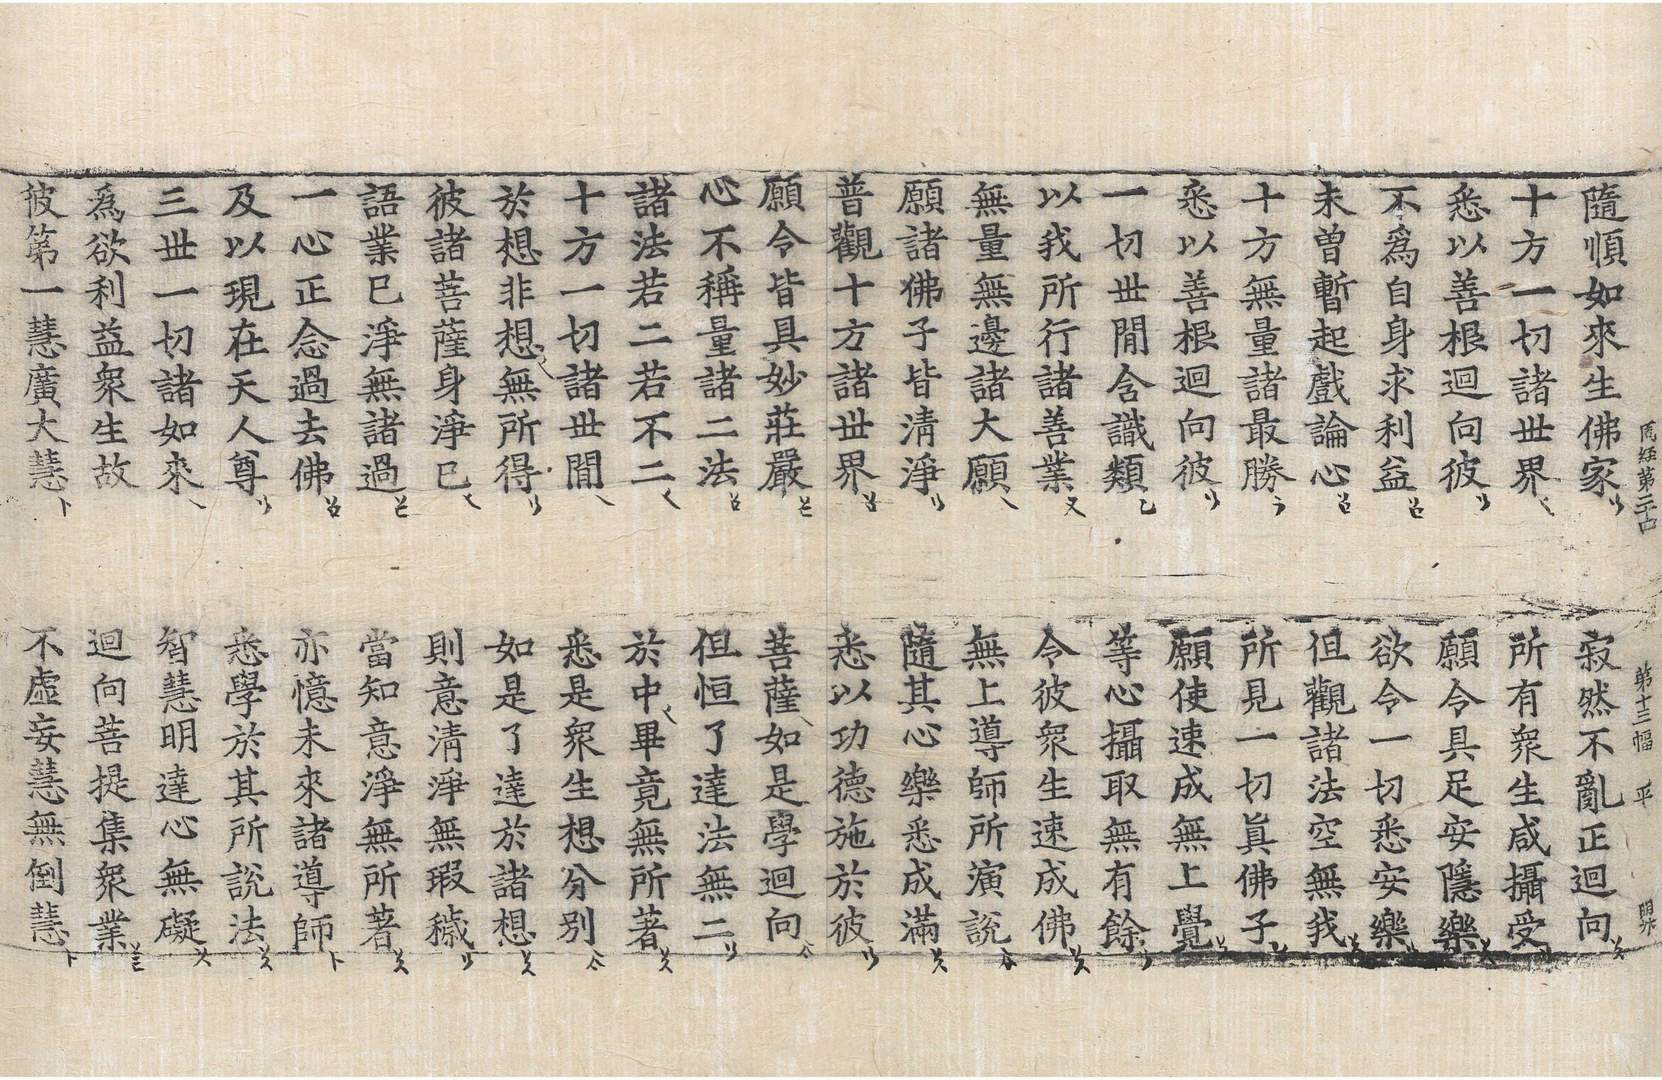 第十三幅 平
隨順如來生佛家 寂然不亂正迴向
十方一切諸世界 所有衆生咸攝受
悉以善根迴向彼 願令具足安隱樂
不爲自身求利益 欲令一切悉安樂
未曾暫起戲論心 但觀諸法空無我
十方無量諸最勝 所見一切眞佛子
悉以善根迴向彼 願使速成無上覺
一切世閒含識類 等心攝取無有餘
以我所行諸善業 令彼衆生速成佛
無量無邊諸大願 無上導師所演說
願諸佛子皆清淨 隨其心樂悉成滿
普觀十方諸世界 悉以功德施於彼
願令皆具妙莊嚴 菩薩如是學迴向
心不稱量諸二法 但恒了達法無二
諸法若二若不二 於中畢竟無所著
十方一切諸世閒 悉是衆生想分別
於想非想無所得 如是了達於諸想
彼諸菩薩身淨已 則意清淨無瑕穢
語業已淨無諸過 當知意淨無所著
一心正念過去佛 亦憶未來諸導師
及以現在天人尊 悉學於其所說法
三世一切諸如來 智慧明達心無礙
爲欲利益衆生故 迴向菩提集衆業
彼第一慧廣大慧 不虛妄慧無倒慧